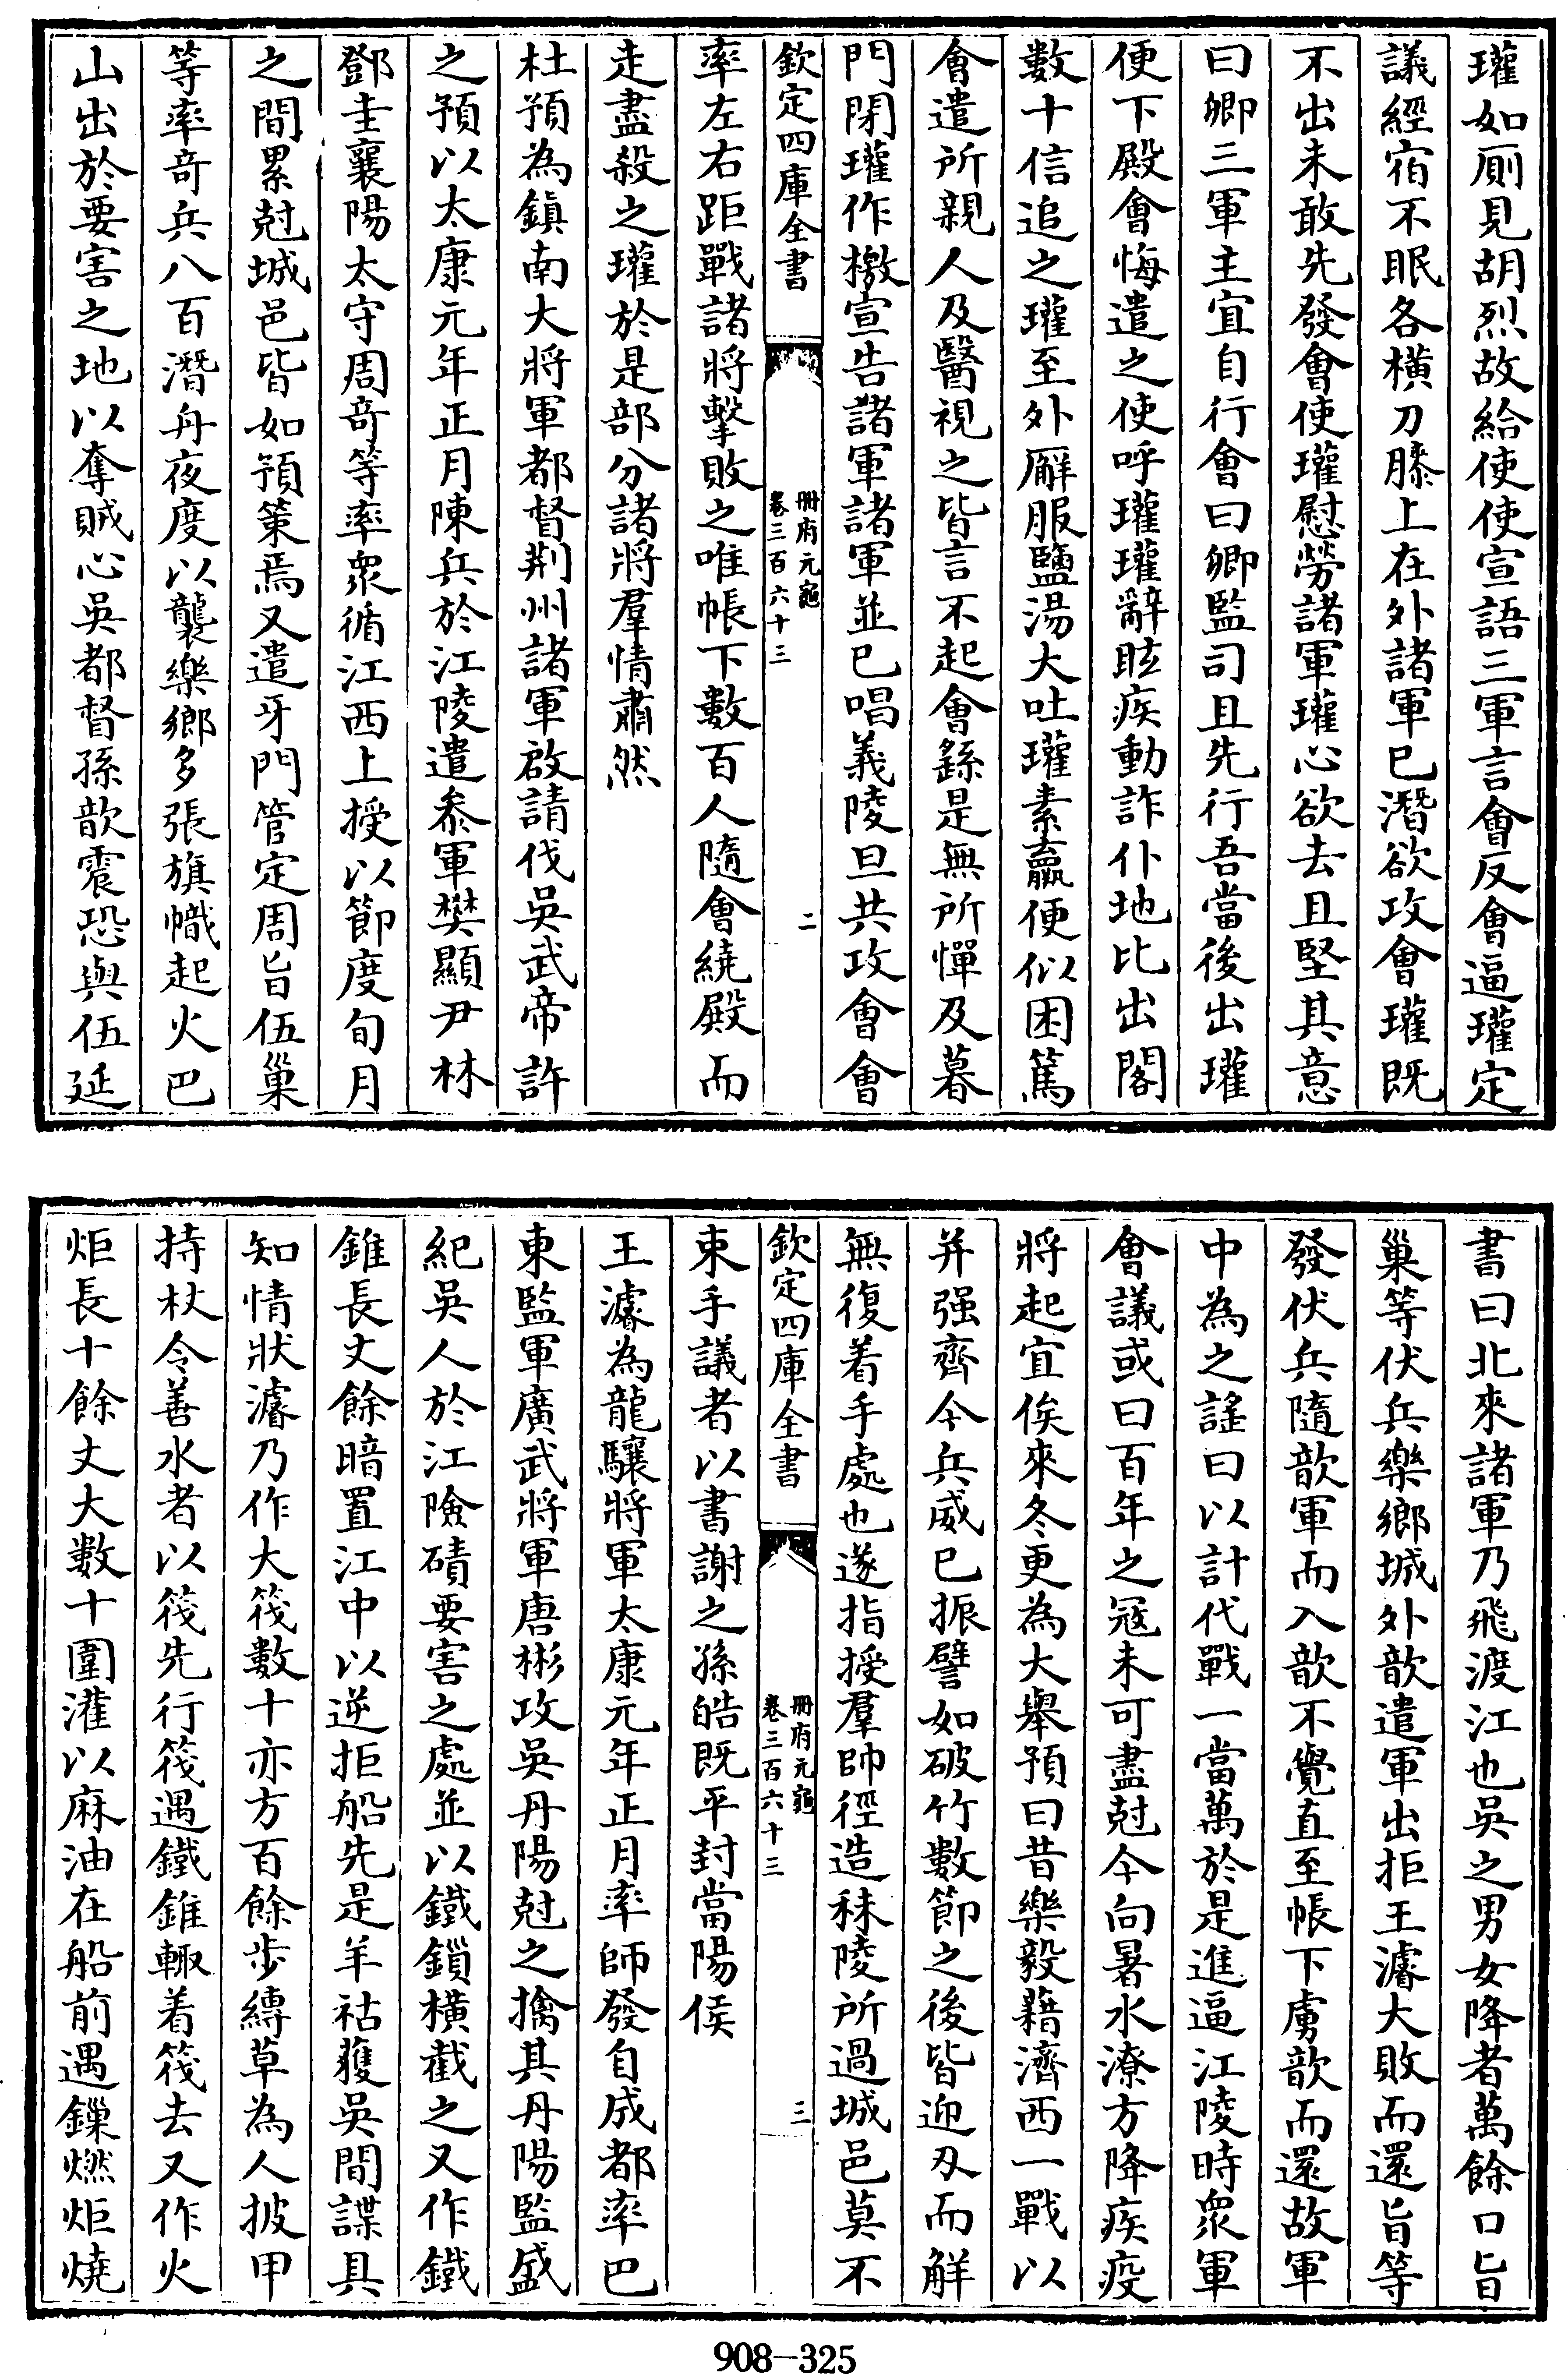 瓘如廁見胡烈故給使使宣語三軍言會反會逼瓘定
議經宿不眠各横刀膝上在外諸軍已潛欲攻會瓘既
不出未敢先發會使瓘慰勞諸軍瓘心欲去且堅其意
曰卿三軍主宜自行會曰卿監司且先行吾當後出瓘
便下殿會悔遣之使呼瓘瓘辭眩疾動詐仆地比出閣
數十信追之瓘至外廨服鹽湯大吐瓘素羸便似困篤
會遣所親人及醫視之皆言不起會繇是無所憚及暮
門閉瓘作檄宣告諸軍諸軍並已唱義陵旦共攻會會
欽定四庫全書
册府元龜
卷三百六十三
二
率左右距戰諸將擊敗之唯帳下數百人隨會繞殿而
走盡殺之瓘於是部分諸將羣情肅然
杜預為鎮南大將軍都督荆州諸軍啟請伐吳武帝許
之預以太康元年正月陳兵於江陵遣叅軍樊顯尹林
鄧圭襄陽太守周竒等率衆循江西上授以節度旬月
之間累尅城邑皆如預策焉又遣牙門管定周旨伍巢
等率竒兵八百潛舟夜度以襲樂鄉多張旗幟起火巴
山出於要害之地以奪賊心吳都督孫歆震恐與伍延
書曰北來諸軍乃飛渡江也吳之男女降者萬餘口旨
巢等伏兵樂鄉城外歆遣軍出拒王濬大敗而還旨等
發伏兵隨歆軍而入歆不覺直至帳下虜歆而還故軍
中為之謡曰以計代戰一當萬於是進逼江陵時衆軍
會議或曰百年之冦未可盡尅今向暑水潦方降疾疫
將起宜俟來冬更為大舉預曰昔樂毅藉濟西一戰以
并强齊今兵威已振譬如破竹數節之後皆迎刃而解
無復着手處也遂指授羣帥徑造秣陵所過城邑莫不
欽定四庫全書
册府元龜
卷三百六十三
三
束手議者以書謝之孫皓既平封當陽侯
王濬為龍驤將軍太康元年正月率師發自成都率巴
東監軍廣武將軍唐彬攻吳丹陽尅之擒其丹陽監盛
紀吳人於江險磧要害之處並以鐵鎖横截之又作鐵
錐長丈餘暗置江中以逆拒船先是羊祜獲吳間諜具
知情狀濬乃作大筏數十亦方百餘步縛草為人披甲
持杖令善水者以筏先行筏遇鐵錐輙着筏去又作火
炬長十餘丈大數十圍灌以麻油在船前遇鏁燃炬燒
908—325